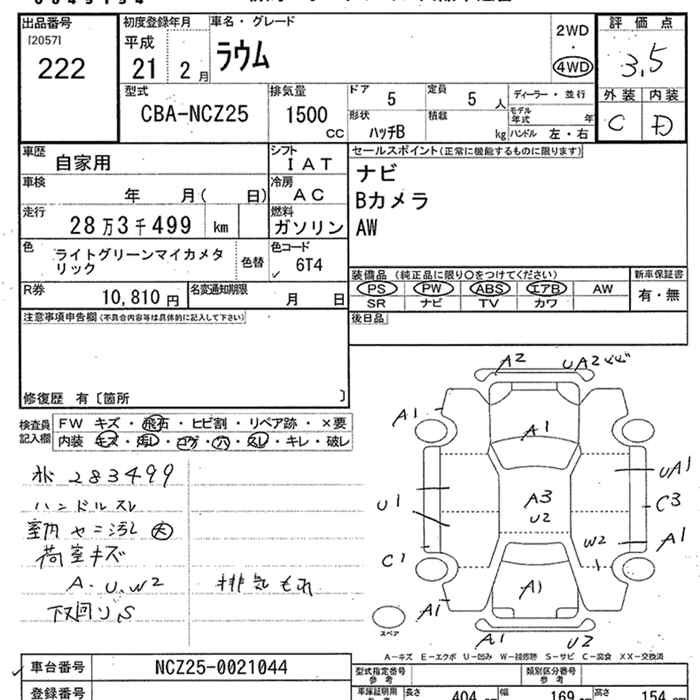 出品番号 初度登録年月 車名・グレード 2WD 評価点
[2057] 平成 ・ 3.5
222 21 2月 ラウム 4WD
型式 排気量 ドア 定員 ディーラー・並行 外装 内装
CBA-NCZ25 1500 CC 5 5人 モデル年式 年 C D
形状 積載
ハッチB kg ハンドル 左・右
車歴 自家用 シフト IAT セールスポイント(正常に機能するものに限ります)
車検 年 月( 日) 冷房 AC ナビ
Bカメラ
走行 28万3千499 km 燃料 ガソリン AW
色 ライトグリーンマイカメタリック 色替 色コード 6T4
装備品 (純正品に限り○をつけてください) 新車保証書
R券 10,810円 名変通知期限 月 日 PS PW ABS エアB AW 有・無
SR ナビ TV カワ
注意事項申告欄(不具合内容等は具体的に記入して下さい) 後日品
修復歴 有〔箇所 〕
検査員記入欄 FW キズ・飛石・ヒビ割・リペア跡・×要
内装 キズ・汚レ・コゲ・穴・スレ・キレ・破レ
283499
ハンドルスレ
室内ヤニ汚レ大
荷室キズ
A・U・W2 排気もれ
下回りS
A2 UA2
A1 A1
UA1
A3 C3
U1 U2
W2 A1
C1 A1
A1
スペア A1 U2
A-キズ E-エクボ U-凹み W-補修跡 S-サビ C-腐食 XX-交換済
車台番号 NCZ25-0021044 型式指定番号 参考 類別区分番号 参考
登録番号 車庫証明用 参考 長さ 404 cm 幅 169 cm 高さ 154 cm